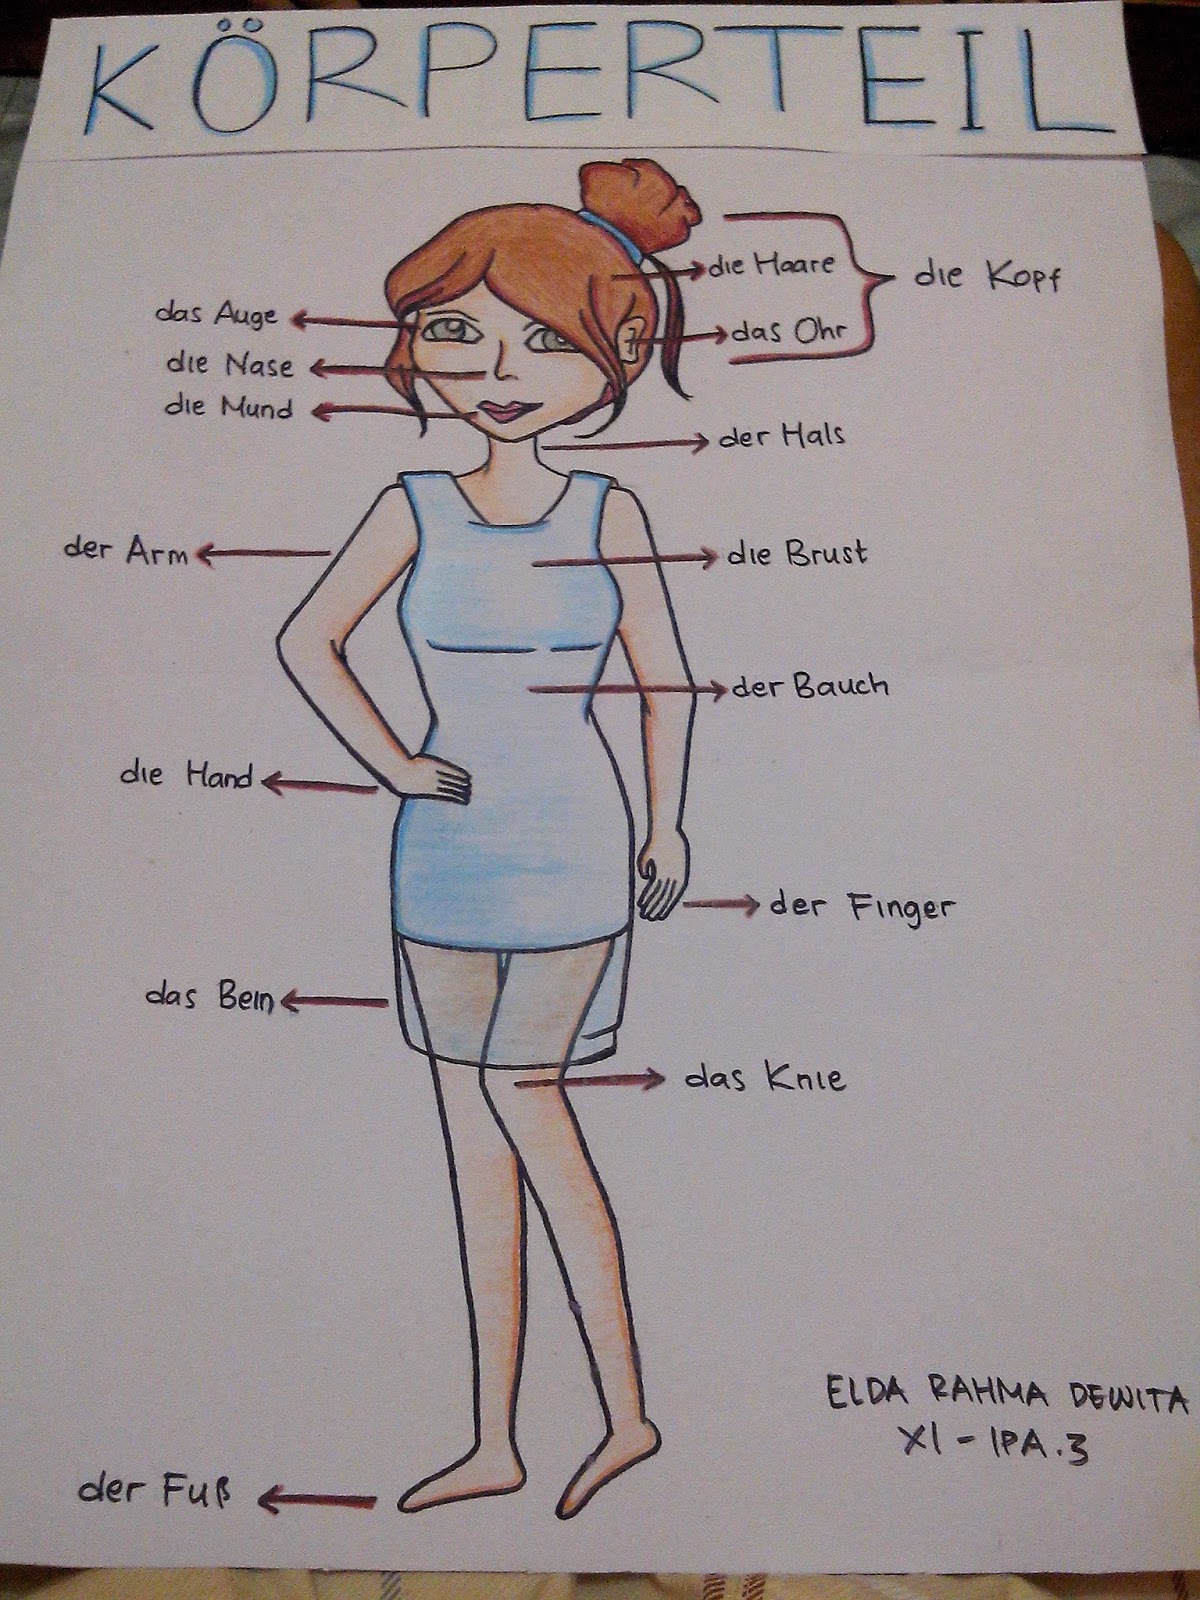 KÖRPERTEIL
die Haare
die Kopf
das Auge
das Ohr
die Nase
die Mund
der Hals
der Arm
die Brust
der Bauch
die Hand
der Finger
das Bein
das Knie
ELDA RAHMA DEWITA
XI - IPA.3
der Fuß